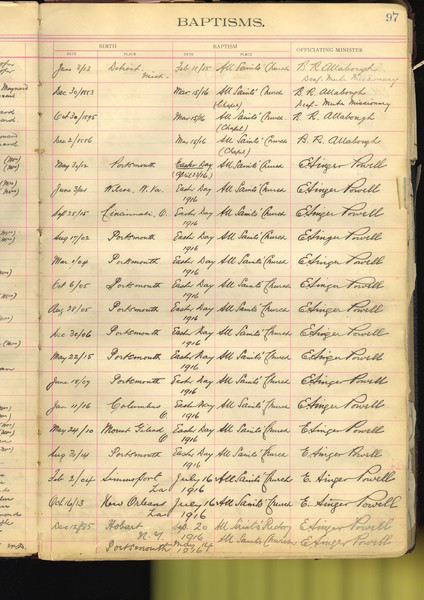 97
BAPTISMS.
BIRTH BAPTISM OFFICIATING MINISTER
DATE PLACE DATE PLACE
June 3/13 Detroit, Feb 11/15 All Saints' Church B. R. Allabough
Mich. Deaf-Mute Missionary
Dec 30/1883 Mar 15/16 All Saints' Church B. R. Allabough
(Chapel) Deaf-Mute Missionary
Oct 30/1895 Mar 15/16 All Saints' Church B. R. Allabough
(Chapel)
Dec 2/1886 Mar 15/16 All Saints' Church B. R. Allabough
(Chapel)
May 30/12 Portsmouth Easter Day All Saints' Church E Ainger Powell
June 3/01 Wilcoe, W. Va. Easter Day All Saints' Church E Ainger Powell
1916
Sept 25/15 Cincinnati, O. Easter Day All Saints' Church E Ainger Powell
1916
Aug 17/02 Portsmouth Easter Day All Saints' Church E Ainger Powell
1916
Mar 1/04 Portsmouth Easter Day All Saints' Church E Ainger Powell
1916
Oct 6/05 Portsmouth Easter Day All Saints' Church E Ainger Powell
1916
Aug 28/05 Portsmouth Easter Day All Saints' Church E Ainger Powell
1916
Dec 30/06 Portsmouth Easter Day All Saints' Church E Ainger Powell
1916
May 22/15 Portsmouth Easter Day All Saints' Church E Ainger Powell
1916
June 18/09 Portsmouth Easter Day All Saints' Church E Ainger Powell
1916
Jan 11/16 Columbus Easter Day All Saints' Church E Ainger Powell
O. 1916
May 24/10 Mount Gilead Easter Day All Saints' Church E Ainger Powell
O. 1916
Aug 3/14 Portsmouth Easter Day All Saints' Church E Ainger Powell
1916
Feb 2/04 Simmesport July 16 All Saints' Church E. Ainger Powell
La. 1916
Oct 16/13 New Orleans July 16 All Saints' Church E. Ainger Powell
La. 1916
Dec 12/85 Hobart Sep. 20 All Saints' Rectory E Ainger Powell
N.Y. 1916
Portsmouth May 14 All Saints' Church E Ainger Powell
1916